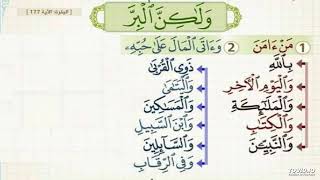 [ البقرة: الآية 177 ]
وَلَٰكِنَّ ٱلْبِرَّ
1 مَنْ ءَامَنَ
بِٱللَّهِ
وَٱلْيَوْمِ ٱلْأَخِرِ
وَٱلْمَلَٰٓئِكَةِ
وَٱلْكِتَٰبِ
وَٱلنَّبِيِّـۧنَ
2 وَءَاتَى ٱلْمَالَ عَلَىٰ حُبِّهِۦ
ذَوِى ٱلْقُرْبَىٰ
وَٱلْيَتَٰمَىٰ
وَٱلْمَسَٰكِينَ
وَٱبْنَ ٱلسَّبِيلِ
وَٱلسَّآئِلِينَ
وَفِى ٱلرِّقَابِ